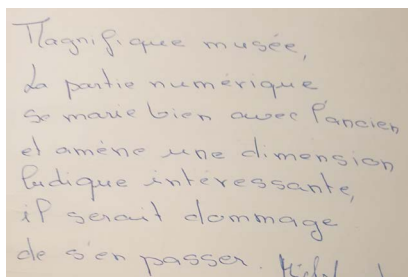 Magnifique musée,
La partie numérique
se marie bien avec l'ancien
et amène une dimension
ludique intéressante,
il serait dommage
de s'en passer.